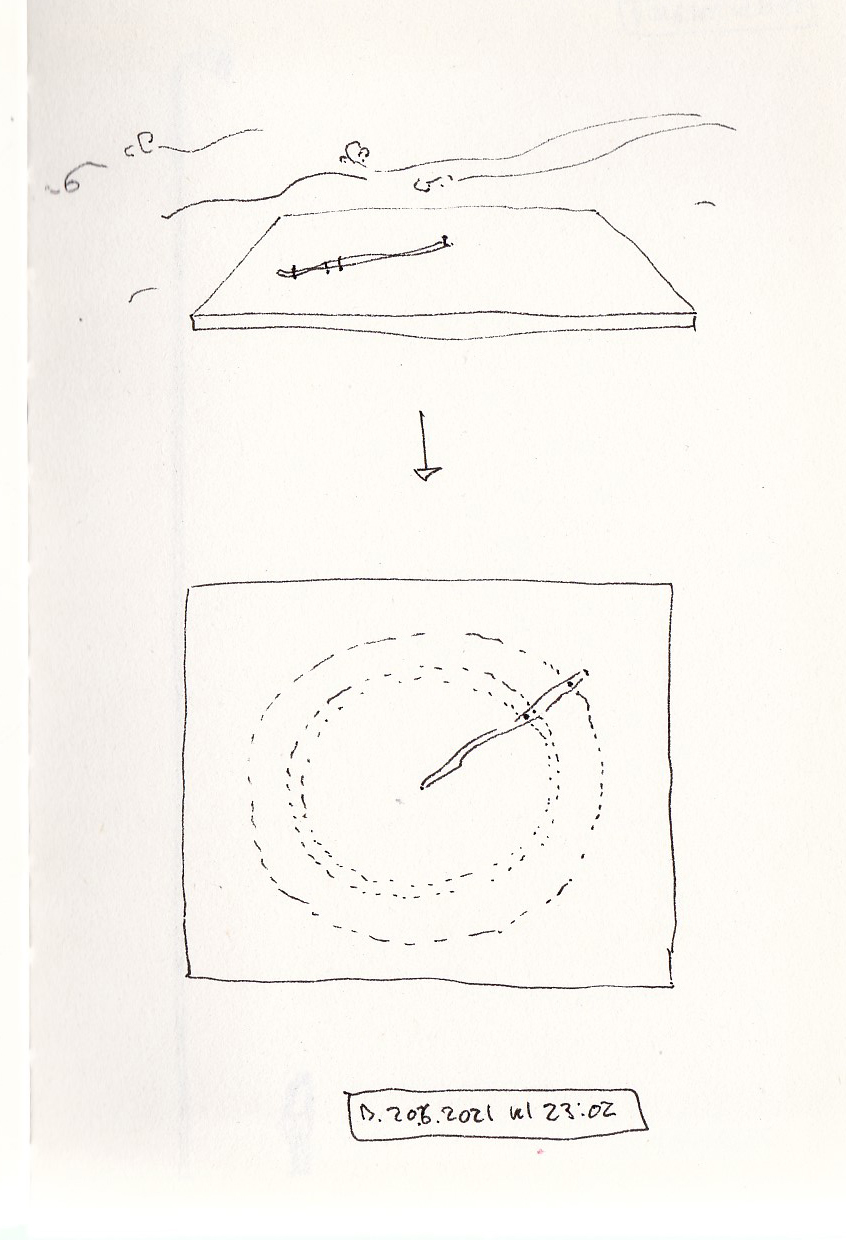 D. 20.6.2021 kl 23:02